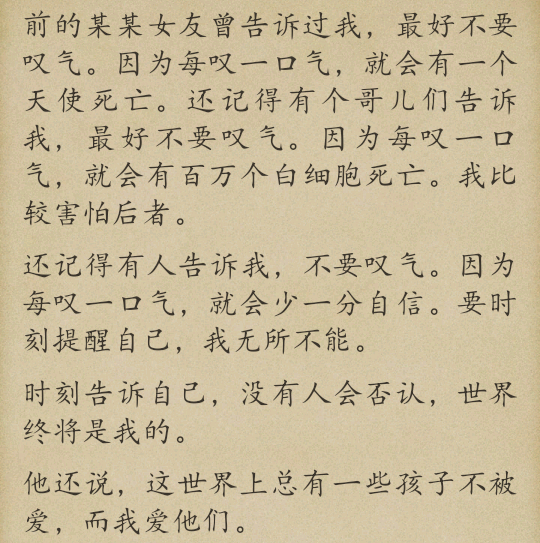 前的某某女友曾告诉过我，最好不要
叹气。因为每叹一口气，就会有一个
天使死亡。还记得有个哥儿们告诉
我，最好不要叹气。因为每叹一口
气，就会有百万个白细胞死亡。我比
较害怕后者。
还记得有人告诉我，不要叹气。因为
每叹一口气，就会少一分自信。要时
刻提醒自己，我无所不能。
时刻告诉自己，没有人会否认，世界
终将是我的。
他还说，这世界上总有一些孩子不被
爱，而我爱他们。